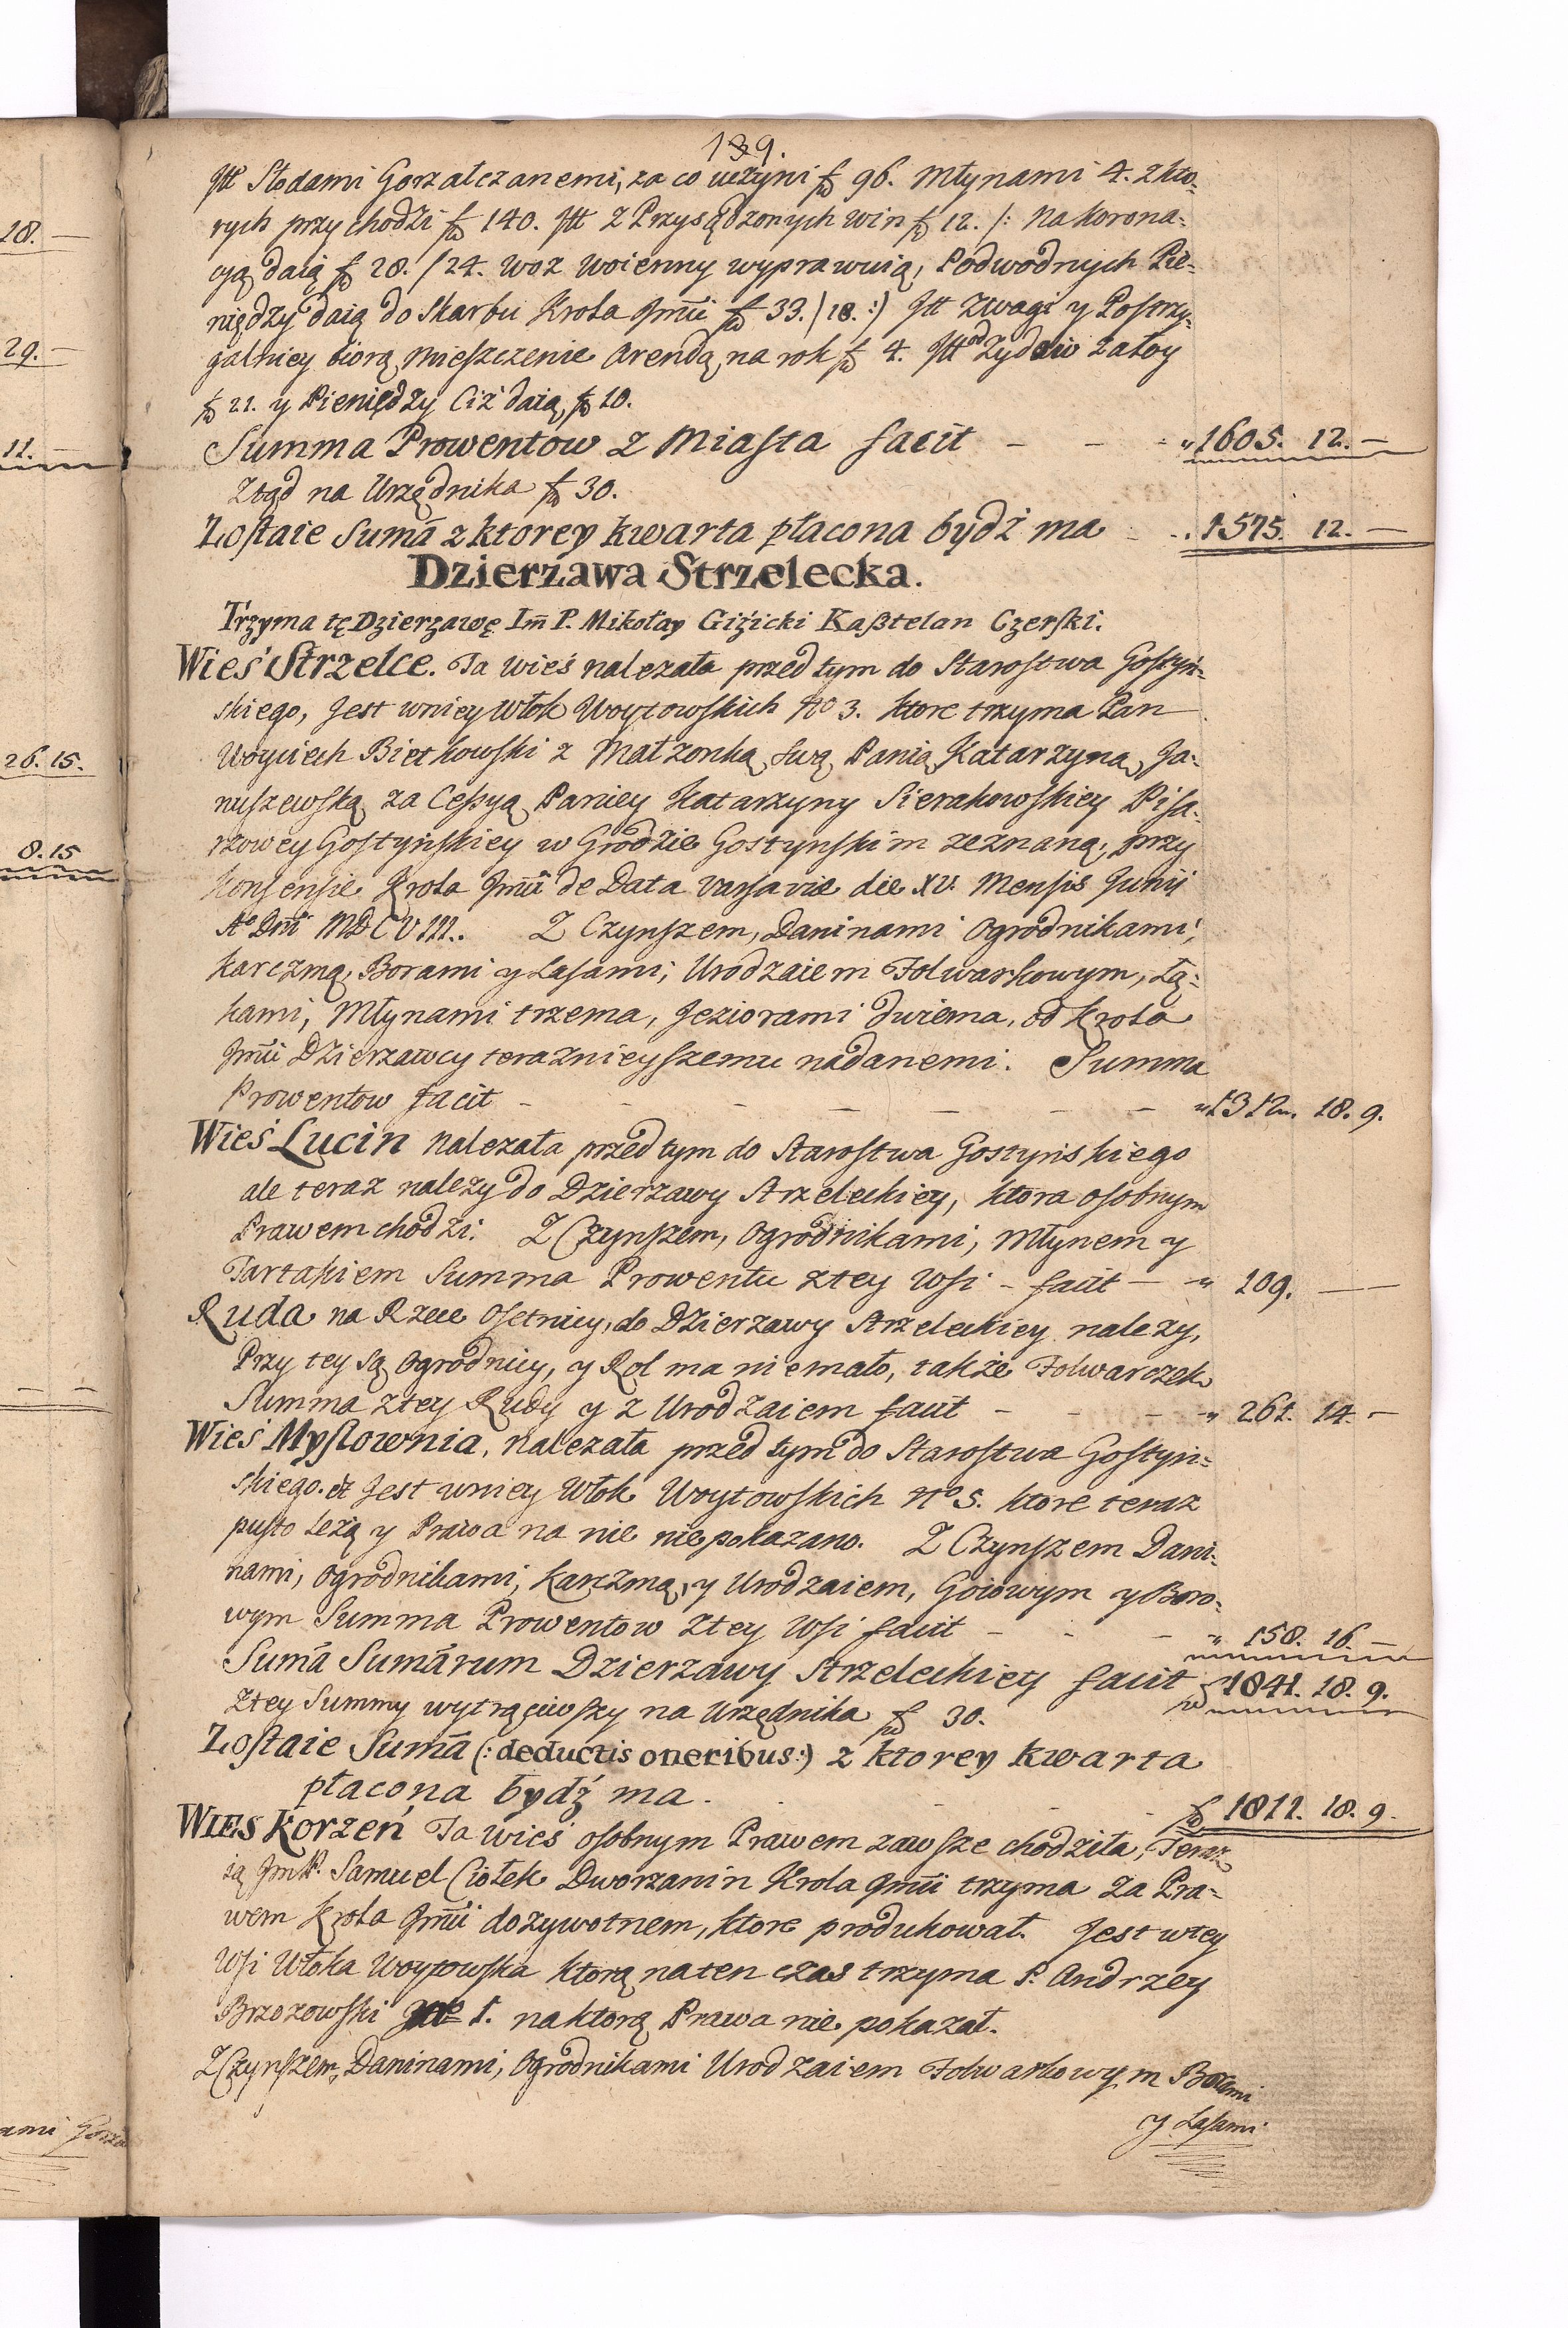 139.
Itt Słodami Gorzałczanemi, za co uczyni f 96. Młynami 4. z kto-
rych przychodzi f 140. Itt z Przysądzonych win f 12. /: Na korona-
cyą daią f 28. /24. woz woienny wyprawuią, Podwodnych Pie-
niędzy daią do Skarbu Krola Jmci f 33. /18. :/ Itt z wagi y Postrzy-
galniey biorą Mieszczenie Arendą na rok f 4. Itt od Zydow Łatoy
f 21. y Pieniędzy Ciż daią f 10.
Summa Prowentow z Miasta facit - - - " 1605. 12. —
Ztąd na Urzędnika f 30.
Zostaie Suma z ktorey kwarta płacona bydź ma - - . 1575. 12. —
Dzierżawa Strzelecka.
Trzyma tę Dzierzawę Im̄ P. Mikołay Giżicki Kasztelan Czerski.
Wieś Strzelce. Ta wieś nalezała przed tym do Starostwa Gostyń-
skiego, Jest w niey Włok Woytowskich No 3. ktore trzyma Pan
Woyciech Bietkowski z Małzonką swą Panią Katarzyną Ja-
nuszewską za Cessyą Paniey Katarzyny Sierakowskiey Pisa-
rzowey Gostyńskiey w Grodzie Gostynskim zeznaną, przy
Konsensie Krola Jmci de Data Varsaviæ die XV. Mensis Junij
Ao Dni MDCVIII. Z Czynszem, Daninami Ogrodnikami,
Karczmą, Borami y Lasami, Urodzaiem Folwarkowym, Łą-
kami, Młynami trzema, Jeziorami dwiema, od Krola
Jmci Dzierzawcy teraznieyszemu nadanemi. Summa
Prowentow facit - - - - - - - " 1312. 18. 9.
Wieś Lucin nalezała przed tym do Starostwa Gostyńskiego
ale teraz nalezy do Dzierzawy Strzeleckiey, ktora osobnym
Prawem chodzi. Z Czynszem, Ogrodnikami, Młynem y
Tartakiem Summa Prowentu z tey Wsi - facit — " 109. — —
Ruda na Rzece Osetnicy, do Dzierzawy Strzeleckiey nalezy,
Przy tey są Ogrodnicy, y Rol ma niemało, także Folwarczek
Summa z tey Rudy y z Urodzaiem facit - - - " 261. 14. —
Wieś Mysłownia, nalezała przed tym do Starostwa Gostyn-
skiego. Jest w niey Włok Woytowskich No 5. ktore teraz
pusto lezą y Prawa na nie nie pokazano. Z Czynszem Dani-
nami, Ogrodnikami, Karczmą, y Urodzaiem, Goiowym y Boro-
wym Summa Prowentow z tey Wsi facit - - - " 158. 16. —
Suma Sumarum Dzierzawy Strzeleckiey facit f 1841. 18. 9.
Z tey Summy wytrąciwszy na Urzędnika f 30.
Zostaie Suma (: deductis oneribus :) z ktorey kwarta
płacona bydź ma. - - - f 1811. 18. 9.
WIES Korzeń Ta wieś osobnym Prawem zawsze chodziła, Teraz
ią Jm P. Samuel Ciołek Dworzanin Krola Jmci trzyma za Pra-
wem Krola Jmci dozywotnem, ktore produkował. Jest w tey
Wsi Włoka Woytowska ktorą na ten czas trzyma P. Andrzey
Brzozowski No 1. na ktorą Prawa nie pokazał.
Z Czynszem, Daninami, Ogrodnikami Urodzaiem Folwarkowym Borami
y Lasami
18. —
29. —
11. —
26. 15.
8. 15
— —